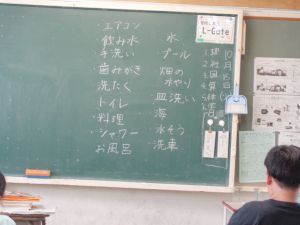 ・エアコン
飲み水
手洗い
・歯みがき
洗たく
トイレ
・料理
・シャワー
お風呂
水
・プール
・畑の
水やり
・皿洗い
・海
・水そう
・洗車
L-Gate
1.理
2.社
3.国
4.算
5.体
10月